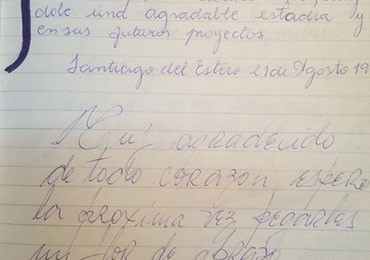 dole una agradable estadia y
en sus futuros proyectos
Santiago del Estero 21 de Agosto 19
Muy agradecido
de todo corazon espero
la proxima vez pegarles
un flor de abrazo